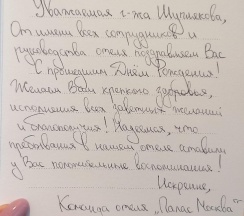 Уважаемая г-жа Шупликова,
От имени всех сотрудников и
руководства отеля поздравляем Вас
С прошедшим Днём Рождения!
Желаем Вам крепкого здоровья,
исполнения всех заветных желаний
и благополучия! Надеемся, что
пребывание в нашем отеле оставит
у Вас положительные воспоминания!
Искренне,
Команда отеля „Палас Москва"